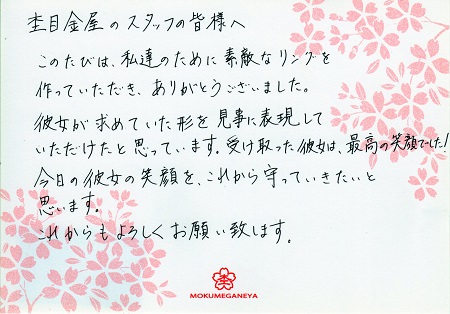 杢目金屋のスタッフの皆様へ
このたびは、私達のために素敵なリングを
作っていただき、ありがとうございました。
彼女が求めていた形を見事に表現して
いただけたと思っています。受け取った彼女は、最高の笑顔でした!
今日の彼女の笑顔を、これから守っていきたいと
思います。
これからもよろしくお願い致します。
杢
MOKUMEGANEYA